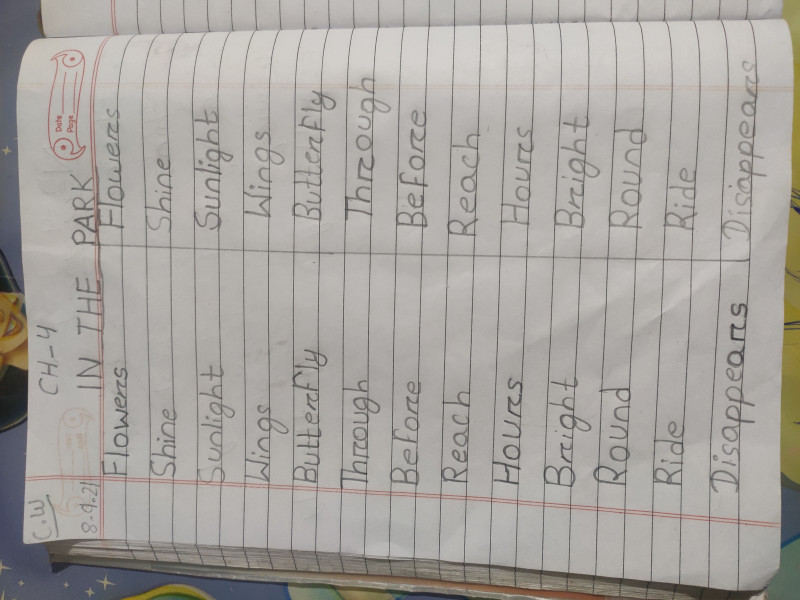 C.W
CH-4
Date
Page
8.9.21
IN THE PARK
Flowers Flowers
Shine Shine
Sunlight Sunlight
Wings Wings
Butterfly Butterfly
Through Through
Before Before
Reach Reach
Hours Hours
Bright Bright
Round Round
Ride Ride
Disappears Disappears